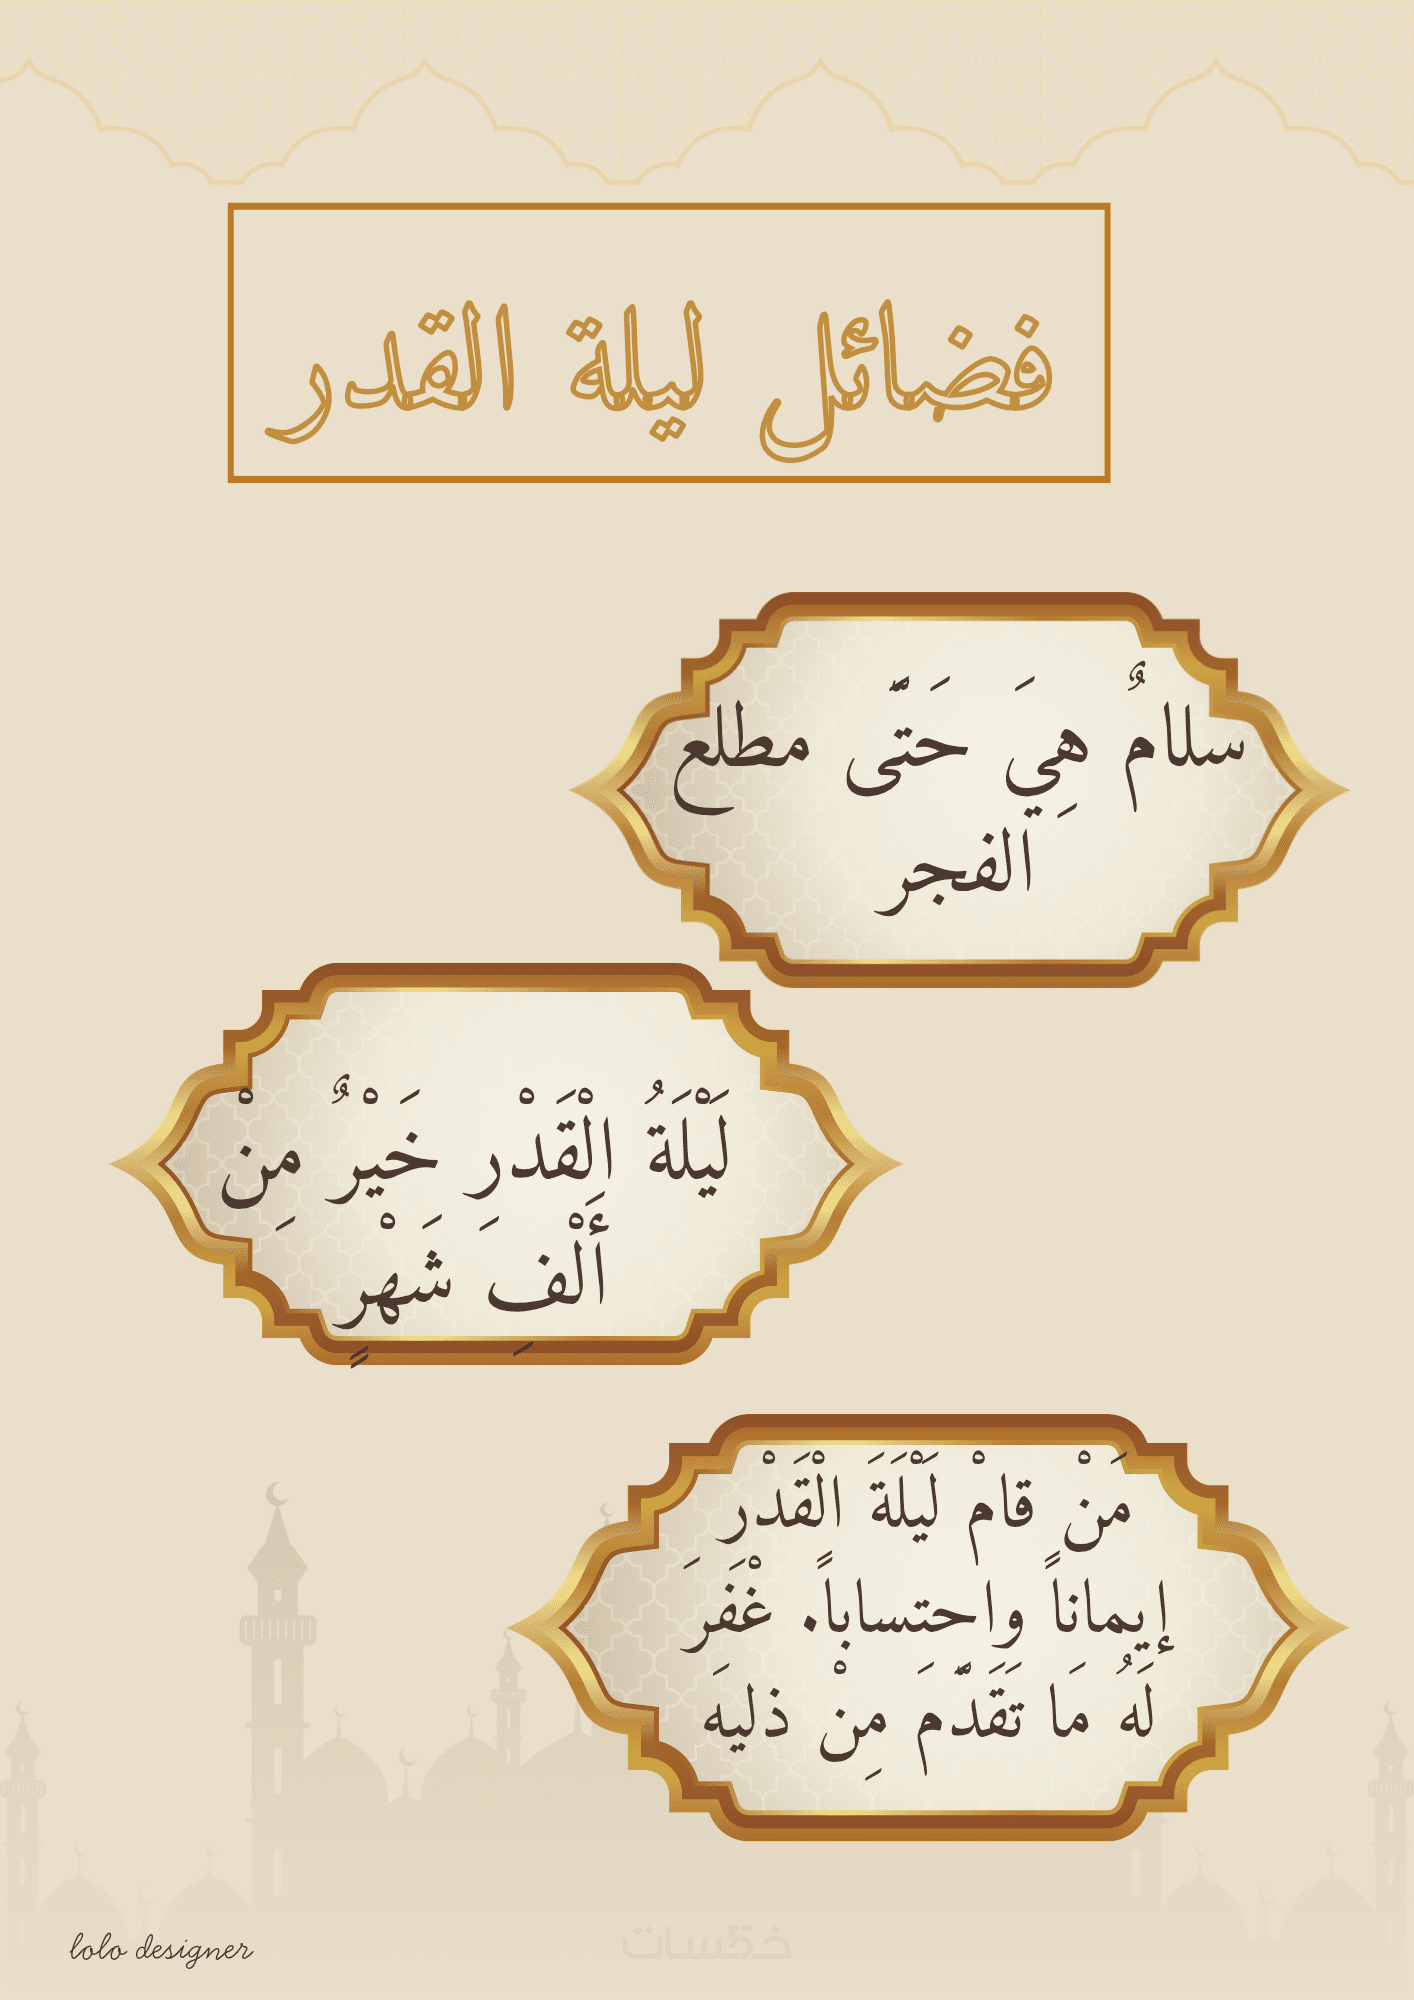 فضائل ليلة القدر
سلامٌ هِيَ حَتَّى مطلع
الفجر
لَيْلَةُ الْقَدْرِ خَيْرٌ مِنْ
أَلْفِ شَهْرٍ
مَنْ قامْ لَيْلَةَ الْقَدْر
إيماناً واحتساباً. غْفَرَ
لَهُ مَا تَقَدَّمَ مِنْ ذليهَ
lolo designer
خمسات